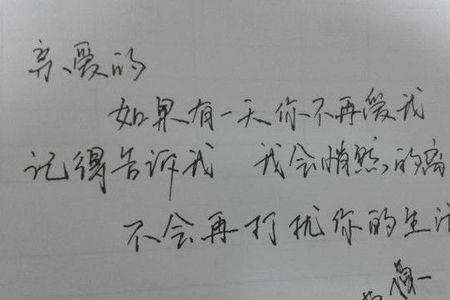 亲爱的
如果有一天你不再爱我
记得告诉我 我会悄然的离
不会再打扰你的生活